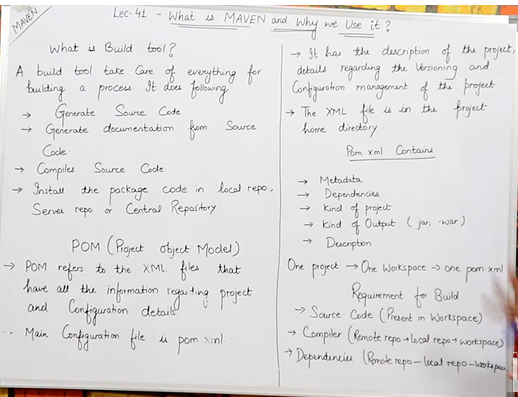 MAVEN
Lec-41 - What is MAVEN and Why we Use it?
What is Build tool?
A build tool take Care of everything for
building a process. It does following
→ Generate Source Code
→ Generate documentation from Source
Code.
→ Compiles Source Code
→ Install the package code in local repo,
Server repo or Central Repository.
POM (Project Object Model)
→ POM refers to the XML files that
have all the information regarding project
and Configuration details
Main Configuration file is pom xml.
→ It has the description of the project,
details regarding the Versioning and
Configuration management of the project.
→ The XML file is in the project
home directory.
Pom xml Contains
→ Metadata
→ Dependencies
→ Kind of project
→ Kind of Output (jar, .war)
→ Description
One project → One Workspace → one pom xml
Requirement for Build
→ Source Code (Present in Workspace)
→ Compiler (Remote repo → local repo → workspace)
→ Dependencies (Remote repo - local repo - workspace